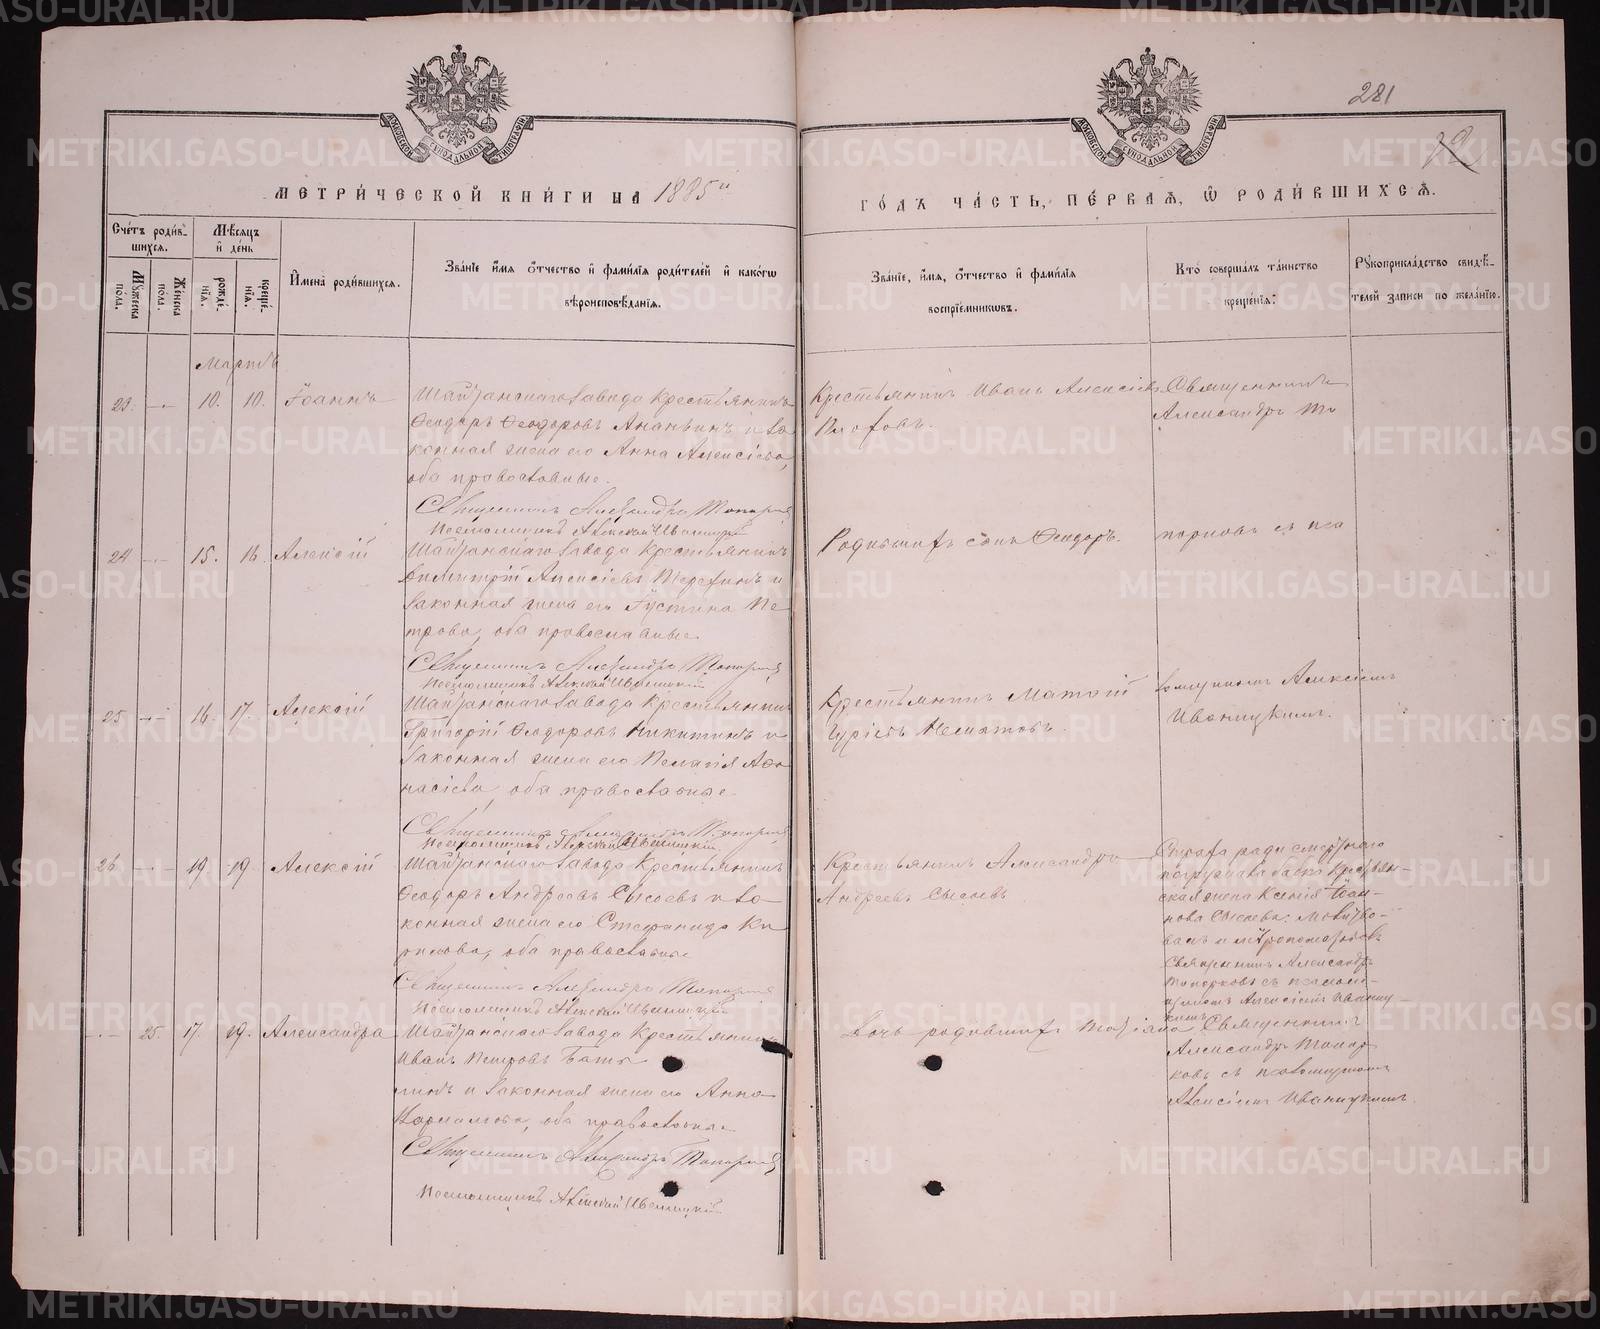 281
МЕТРИ́ЧЕСКОЙ КНИ́ГИ НА 1885 й
ГО́ДЪ ЧА́СТЬ, ПЕ́РВАѦ, Ѿ РОДИ́ВШИХСѦ.
МОСКОВСКОЙ СѴНОДАЛЬНОЙ ТИПОГРАФІИ
МОСКОВСКОЙ СѴНОДАЛЬНОЙ ТИПОГРАФІИ
Сче́тъ роди́в-
шихсѧ.
Мꙋ́жеска по́ла.
Же́нска по́ла.
Мѣ́сѧцъ
и҆ де́нь
рожде́-
нїѧ.
креще́-
нїѧ.
И҆мена̀ роди́вшихсѧ.
Зва́нїе и҆́мѧ ѻ҆́тчество и҆ фами́лїѧ роди́телей и҆ како́гѡ
вѣроисповѣ́данїѧ.
Зва́нїе, и҆́мѧ, ѻ҆́тчество и҆ фами́лїѧ
воспрїе́мникѡвъ.
Кто̀ соверша́лъ та́инство
креще́нїѧ:
Рꙋкоприкла́дство свидѣ́-
телей за́писи по жела́нїю.
Мартъ
23. 10. 10. Іоаннъ
Шайтанскаго завода крестьянинъ
Ѳеодоръ Ѳеодоровъ Ананьинъ и за
конная жена его Анна Алексіева,
оба православные.
Священникъ Александръ Топорковъ
Псаломщикъ Алексій Иваницкій
Крестьянинъ Иванъ Алексіевъ
Плоховъ.
Священникъ
Александръ То
24 15. 16. Алексій
Шайтанскаго завода крестьянинъ
Димитрій Алексіевъ Терехинъ и
законная жена его Іустина Пе
трова, оба православные.
Священникъ Александръ Топорковъ
Псаломщикъ Алексій Иваницкій
Родившихъ сынъ Ѳеодоръ.
порковъ съ пса
25 16. 17. Алексій
Шайтанскаго завода крестьянинъ
Григорій Ѳеодоровъ Никитинъ и
законная жена его Пелагія Аѳа
насіева, оба православные.
Священникъ Александръ Топорковъ
Псаломщикъ Алексій Иваницкій
Крестьянинъ Матѳій
ломщикомъ Алексіемъ
Иваницкимъ.
26 19. 19. Алексій
Шайтанскаго завода крестьянинъ
Ѳеодоръ Андреевъ Сысоевъ и за
конная жена его Стефанида Ки
рилова, оба православные
Священникъ Александръ Топорковъ
Псаломщикъ Алексій Иваницкій
Крестьянинъ Александръ
Андреевъ Сысоевъ
Страха ради смертнаго
погружала бабка крестьян-
ская жена Ксенія Іоан-
нова Сысоева; молитво-
валъ и мѵропомазовалъ
Священникъ Александръ
Топорковъ съ псалом-
щикомъ Алексіемъ Иваниц-
кимъ
25. 17. 19. Александра
Шайтанскаго завода крестьянинъ
Иванъ Петровъ
и законная жена его Анна
оба православные
Священникъ Александръ Топорковъ
Псаломщикъ Алексій Иваницкій
Дочь родившихъ
Священникъ
Александръ Топор
ковъ съ псаломщикомъ
Алексіемъ Иваницкимъ.
METRIKI.GASO-URAL.RU